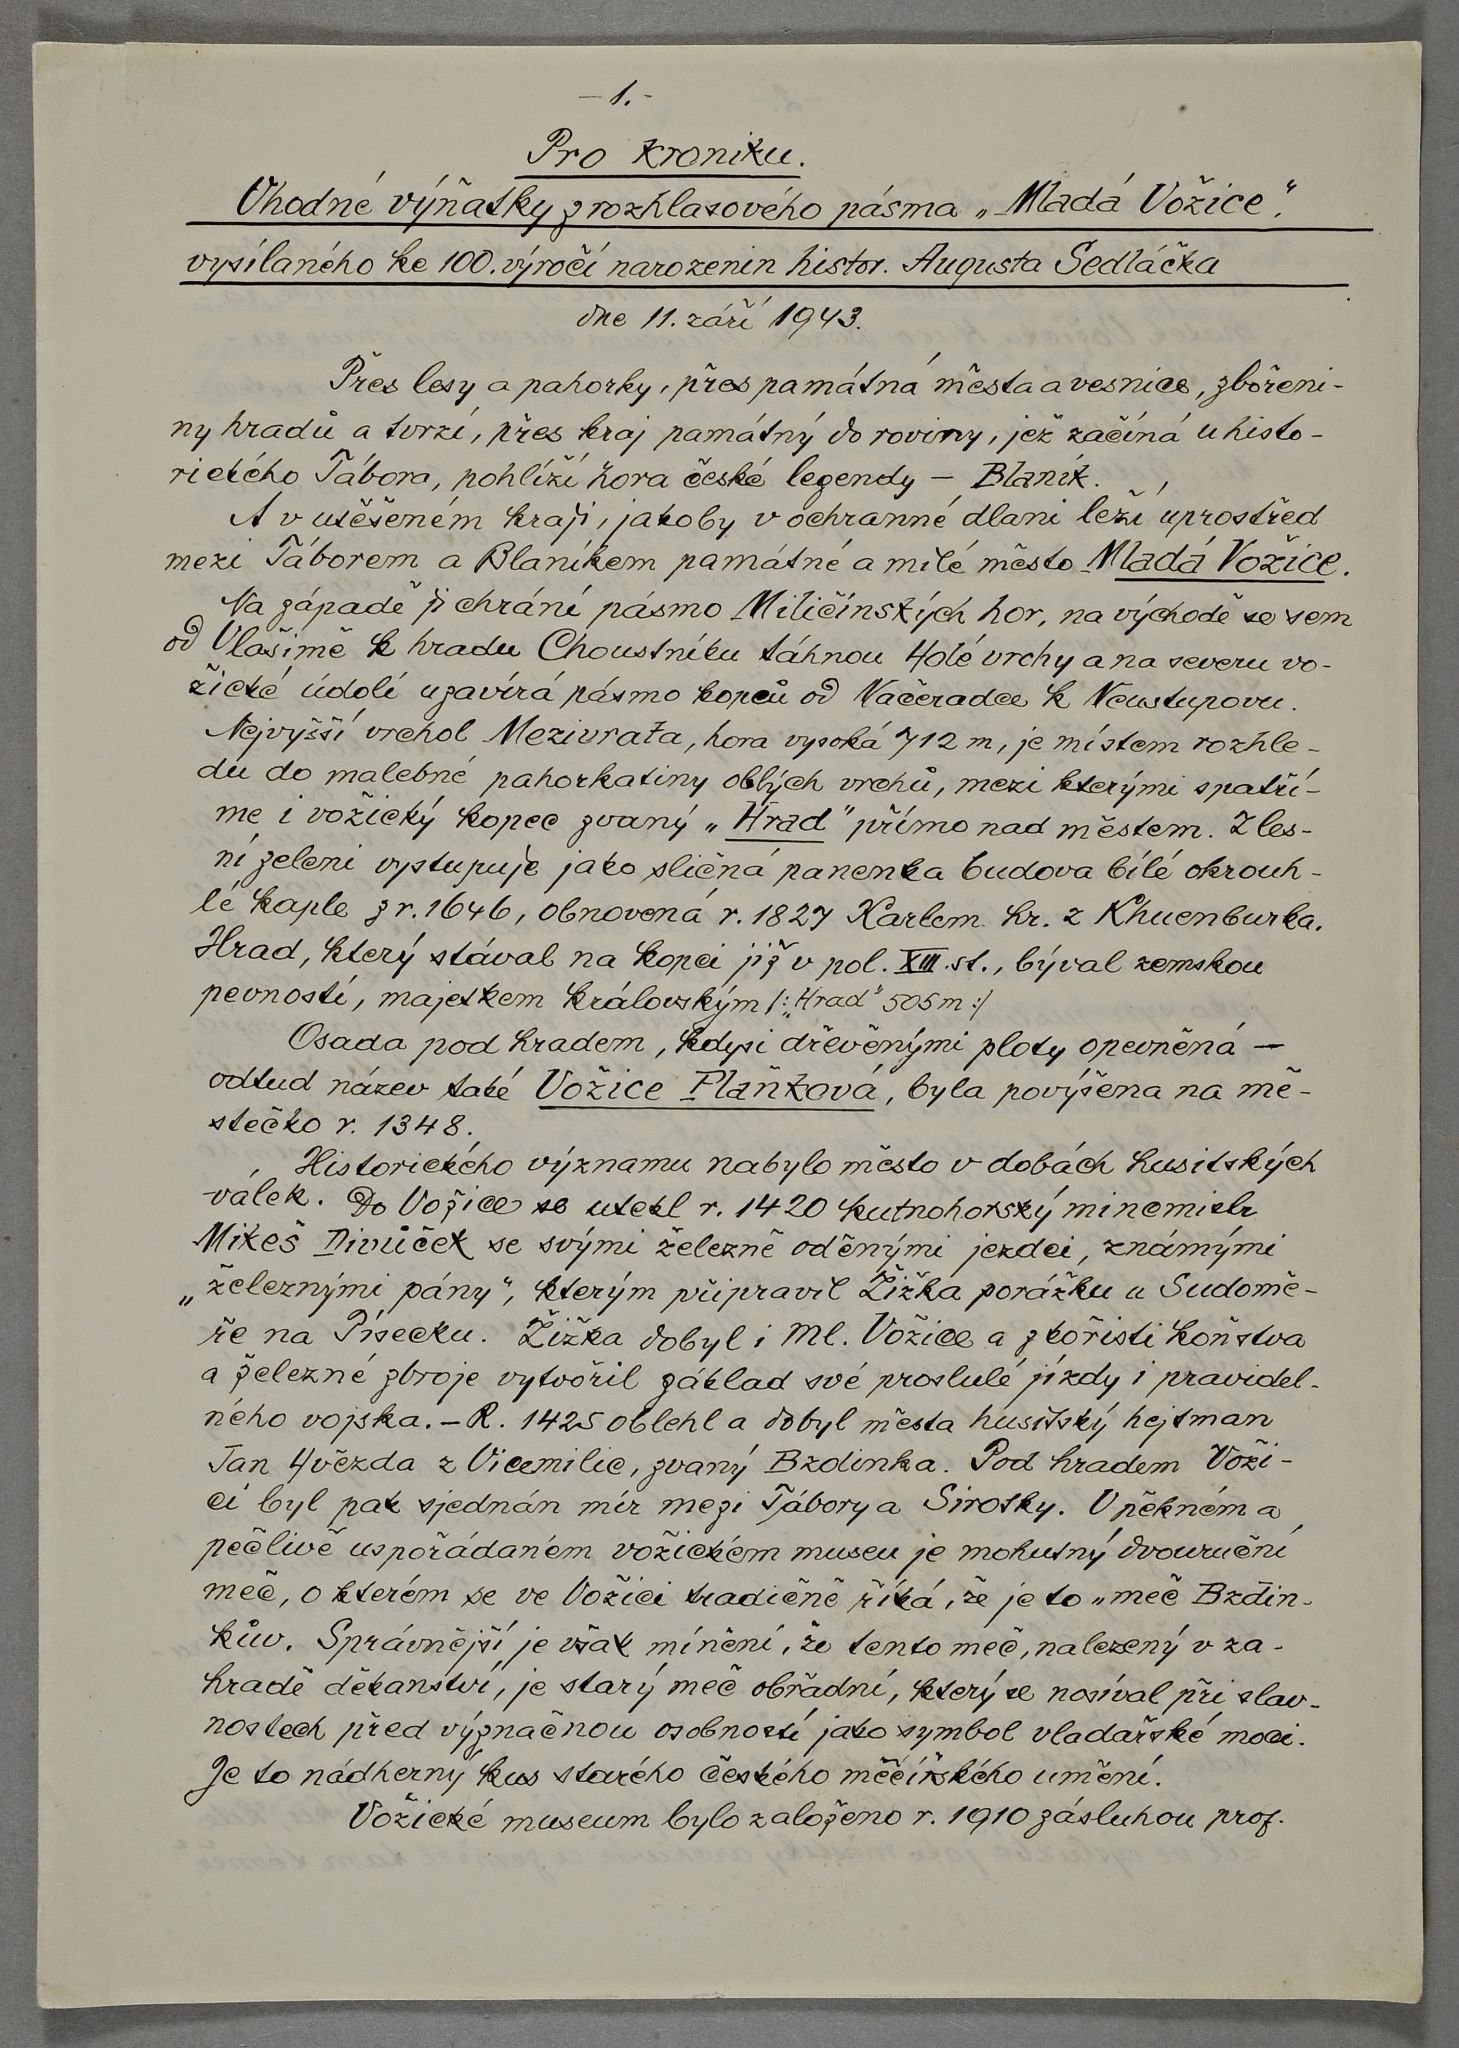 - 1. -
Pro kroniku.
Vhodné výňatky z rozhlasového pásma „Mladá Vožice",
vysílaného ke 100. výročí narozenin histor. Augusta Sedláčka
dne 11. září 1943.
Přes lesy a pahorky, přes památná města a vesnice, zbořeni-
ny hradů a tvrzí, přes kraj památný do roviny, jež začíná u histo-
rického Tábora, pohlíží hora české legendy — Blaník.
A v utěšeném kraji, jakoby v ochranné dlani leží uprostřed
mezi Táborem a Blaníkem památné a milé město Mladá Vožice.
Na západě ji chrání pásmo Miličínských hor, na východě se sem
od Vlašimě k hradu Choustníku táhnou Holé vrchy a na severu vo-
žické údolí uzavírá pásmo kopců od Načeradce k Neustupovu.
Nejvyšší vrchol Mezivrata, hora vysoká 712 m, je místem rozhle-
du do malebné pahorkatiny oblých vrchů, mezi kterými spatří-
me i vožický kopec zvaný „Hrad" přímo nad městem. Z les-
ní zeleni vystupuje jako sličná panenka budova bílé okrouh-
lé kaple z r. 1646, obnovená r. 1827 Karlem hr. z Khuenburka.
Hrad, který stával na kopci již v pol. XIII. st., býval zemskou
pevností, majetkem královským /: „Hrad" 505 m :/
Osada pod hradem, kdysi dřevěnými ploty opevněná —
odtud název také Vožice Plaňková, byla povýšena na mě-
stečko r. 1348.
Historického významu nabylo město v dobách husitských
válek. Do Vožice se utekl r. 1420 kutnohorský mincmistr
Mikeš Divůček se svými železně oděnými jezdci, známými
„železnými pány", kterým připravil Žižka porážku u Sudomě-
ře na Písecku. Žižka dobyl i Ml. Vožice a z kořisti koňstva
a železné zbroje vytvořil základ své proslulé jízdy i pravidel-
ného vojska. — R. 1425 oblehl a dobyl města husitský hejtman
Jan Hvězda z Vicemilic, zvaný Bzdinka. Pod hradem Voži-
cí byl pak sjednán mír mezi Tábory a Sirotky. V pěkném a
pečlivě uspořádaném vožickém museu je mohutný dvouruční
meč, o kterém se ve Vožici tradičně říká, že je to „meč Bzdin-
kův. Správnější je však mínění, že tento meč, nalezený v za-
hradě děkanství, je starý meč obřadní, který se nosíval při slav-
nostech před význačnou osobností jako symbol vladařské moci.
Je to nádherný kus starého českého mečířského umění.
Vožické museum bylo založeno r. 1910 zásluhou prof.